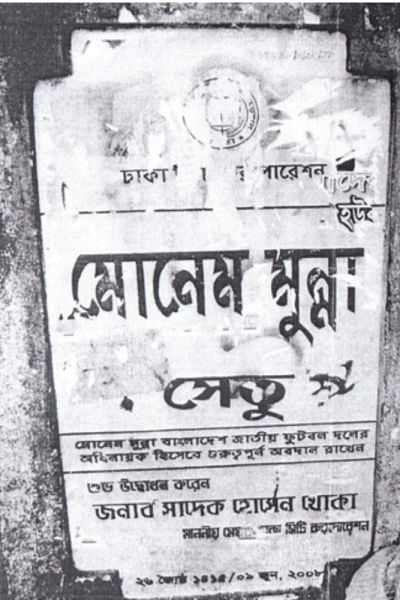 ঢাকা
মোনেম মুন্না
সেতু
মোনেম মুন্না বাংলাদেশ জাতীয় ফুটবল দলের
অধিনায়ক হিসেবে গুরুত্বপূর্ণ অবদান রাখেন
শুভ উদ্বোধন করেন
জনাব সাদেক হোসেন খোকা
মাননীয় সিটি কর্পোরেশন
২৬ জ্যৈষ্ঠ ১৪১৫/০৯ জুন, ২০০৮